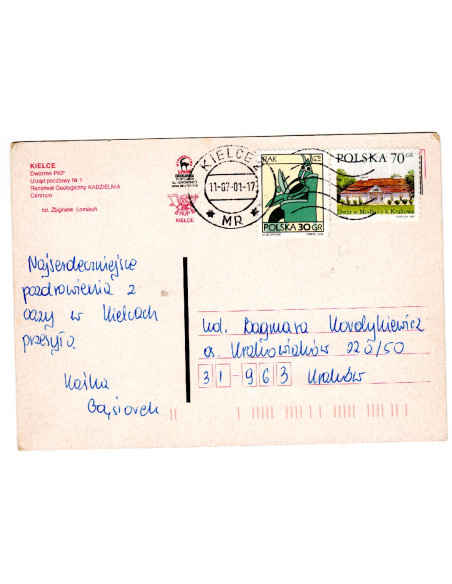 KIELCE
Dworzec PKP
Urząd pocztowy Nr 1
Rezerwat Geologiczny KADZIELNIA
Centrum
fot. Zbigniew Lomiech
KIELCE
KIELCE
11-07-01-17
* MR *
RAK
POLSKA 30 GR
POLSKA 70 GR
Dwór w Modlnicy k. Krakowa
Najserdeczniejsze
pozdrowienia z
oazy w Kielcach
przesyła
Kaśka
Gąsiorek
Dagmara
os. Krakowiaków 220/50
31-963 Kraków